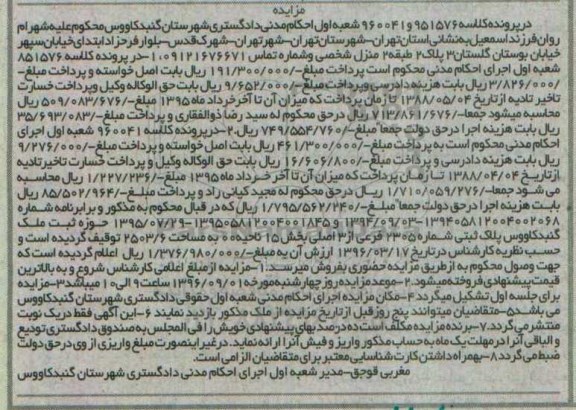 مزایده
درپرونده کلاسه ۹۵۱۵۷۶ و ۹۶۰۰۴۱ شعبه اول احکام مدنی دادگستری شهرستان گنبدکاووس محکوم علیه شهرام
روان فرزند اسمعیل به نشانی استان تهران-شهرستان تهران-شهرتهران-شهرک قدس-بلوار فرحزاد ابتدای خیابان سپهر
خیابان بوستان گلستان ۳ پلاک ۲ طبقه ۲ منزل شخصی وشماره تماس ۰۹۱۲۱۶۷۶۶۷۱ ۱-در پرونده کلاسه ۸۵۱۵۷۶
شعبه اول اجرای احکام مدنی محکوم است پرداخت مبلغ-/۱۹۱/۳۰۰/۰۰۰ ریال بابت اصل خواسته و پرداخت مبلغ-
/۳/۸۲۶/۰۰۰ ریال بابت هزینه دادرسی وپرداخت مبلغ-/۹/۶۵۲/۰۰۰ ریال بابت حق الوکاله وکیل وپرداخت خسارت
تاخیر تادیه از تاریخ ۱۳۸۸/۰۵/۰۴ تا زمان پرداخت که میزان آن تا آخر خرداد ماه ۱۳۹۵ مبلغ-/۵۰۹/۰۸۳/۶۷۶ ریال
محاسبه میشود جمعا-/۷۱۳/۸۶۱/۶۷۶ ریال درحق محکوم له سید رضا ذوالفقاری و پرداخت مبلغ-/۳۵/۶۹۳/۰۸۳
ریال بابت هزینه اجرا درحق دولت جمعا مبلغ-/۷۴۹/۵۵۴/۷۶۰ ریال.۲-درپرونده کلاسه ۹۶۰۰۴۱ شعبه اول اجرای
احکام مدنی محکوم است به پرداخت مبلغ-/۴۶۱/۳۰۰/۰۰۰ ریال بابت اصل خواسته و پرداخت مبلغ-/۹/۲۷۶/۰۰۰
ریال بابت هزینه دادرسی و پرداخت مبلغ-/۱۶/۶۰۶/۸۰۰ ریال بابت حق الوکاله وکیل و پرداخت خسارت تاخیرتادیه
ازتاریخ ۱۳۸۸/۰۴/۰۴ تـا زمـان پرداخت که میزان آن تا آخر خـرداد ماه ۱۳۹۵ مبلغ-/۱/۲۲۷/۲۳۶ ریال محاسبه
می شود جمعا-/۱/۷۱۰/۰۵۹/۲۷۶ ریـال درحق محکوم له مجید کیانی راد و پرداخت مبلغ-/۸۵/۵۰۲/۹۶۴ ریـال
بابت هزینه اجرا درحق دولت جمعا مبلغ-/۱/۷۹۵/۵۶۲/۲۴۰ ریال که در قبال محکوم به مذکور و برابرنامه شماره
۱۳۹۴۰۵۸۱۲۰۰۴۰۰۲۰۶۸-۱۳۹۴/۰۹/۰۳ و ۱۳۹۵۰۵۸۱۲۰۰۴۰۰۱۸۴۵-۱۳۹۵/۰۷/۲۱ حوزه ثبت ملک
گنبدکاووس پلاک ثبتی شماره ۲۳۰۵ فرعی از ۱۳ اصلی بخش ۱۵ ناحیه ۰۰ به مساحت ۲۵۰۳/۶ توقیف گردیده است و
حسب نظریه کارشناس در تاریخ ۱۳۹۶/۰۳/۱۷ ارزش آن به مبلغ-/۱/۳۷۶/۹۸۰/۰۰۰ ریال اعلام گردیده است که
جهت وصول محکوم به ازطریق مزایده حضوری بفروش میرسد.۱-مزایده از مبلغ اعلامی کارشناس شروع و به بالاترین
قیمت پیشنهادی فروخته میشود.۲-موعد مزایده روز چهارشنبه مورخه ۱۳۹۶/۰۹/۰۱ ساعت ۹ الی ۱۰ میباشد ۳-مزایده
برای جلسه اول تشکیل میگردد ۴-مکان مزایده اجرای احکام مدنی شعبه اول حقوقی دادگستری شهرستان گنبدکاووس
می باشد ۵-متقاضیان میتوانند پنج روز قبل از تاریخ مزایده از ملک مذکور بازدید نمایند ۶-این آگهی فقط در یک نوبت
منتشر می گردد.۷-برنده مزایده مکلف است ده درصد بهای پیشنهادی خویش را فی المجلس به صندوق دادگستری تودیع
و الباقی آنرا درمهلت یک ماه به حساب مذکور واریز و فیش آنرا ارائه نماید. درغیر اینصورت مبلغ واریزی از وی درحق دولت
ضبط می گردد ۸-بهمراه داشتن کارت شناسایی معتبر برای متقاضیان الزامی است.
مغربی قوجق-مدیر شعبه اول اجرای احکام مدنی دادگستری شهرستان گنبدکاووس